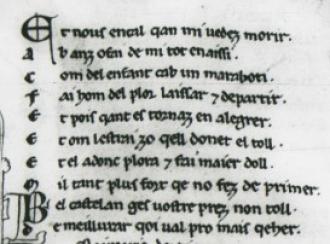 Et nous encal qan mi uedez morir.
ab anz ofai de mi tot enaissi.
com del enfant cab un maraboti.
fai hom del plor laissar ⁊ departir.
et pois qant es tornaz en alegrer.
et om lestrai zo qell donet el toll.
et el adonc plora ⁊ fai maier doll.
mil tant plus fort qe no fez de primer.
Bel castelan ges uostre prez non toll.
e meilluraz qoi ual pro mais qeher.